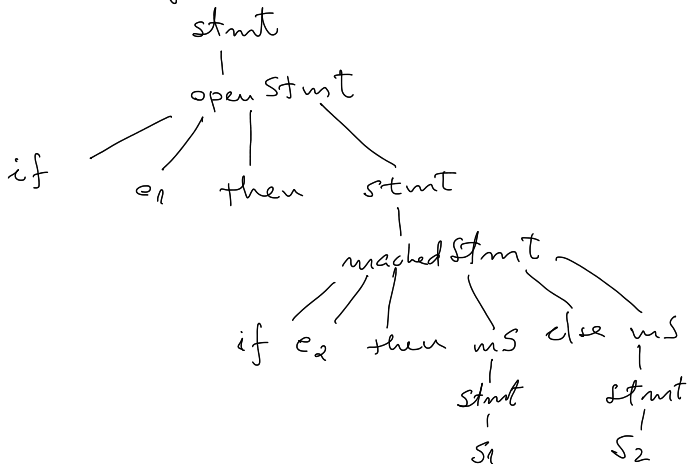 stmt
open Stmt
if e1 then stmt
mached Stmt
if e2 then mS else mS
stmt stmt
S1 S2